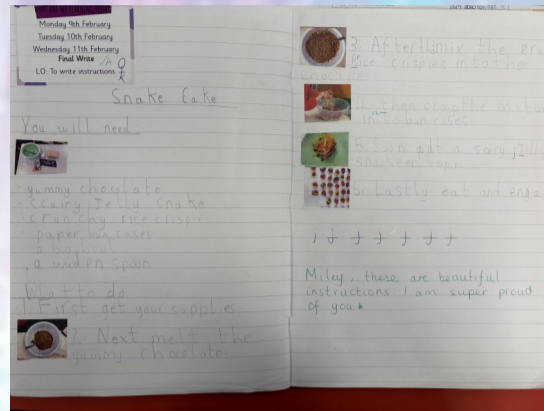 Monday 9th February
Tuesday 10th February
Wednesday 11th February
Final Write
LO: To write instructions
Snake Cake
You will need
yummy chocolate
scairy Jelly snake
crunchy rice crispies
paper bun cases
a big bowl
a wuden spoon
What to do
1. First get your supplies
2. Next melt the
yummy chocolate.
3. After mix the
Rice crispies into the
then scoop the mixtu
in to bun cases
5. Soon put a scary jell
6. Lastly eat and enjo
Miley, these are beautiful
instructions. I am super proud
of you